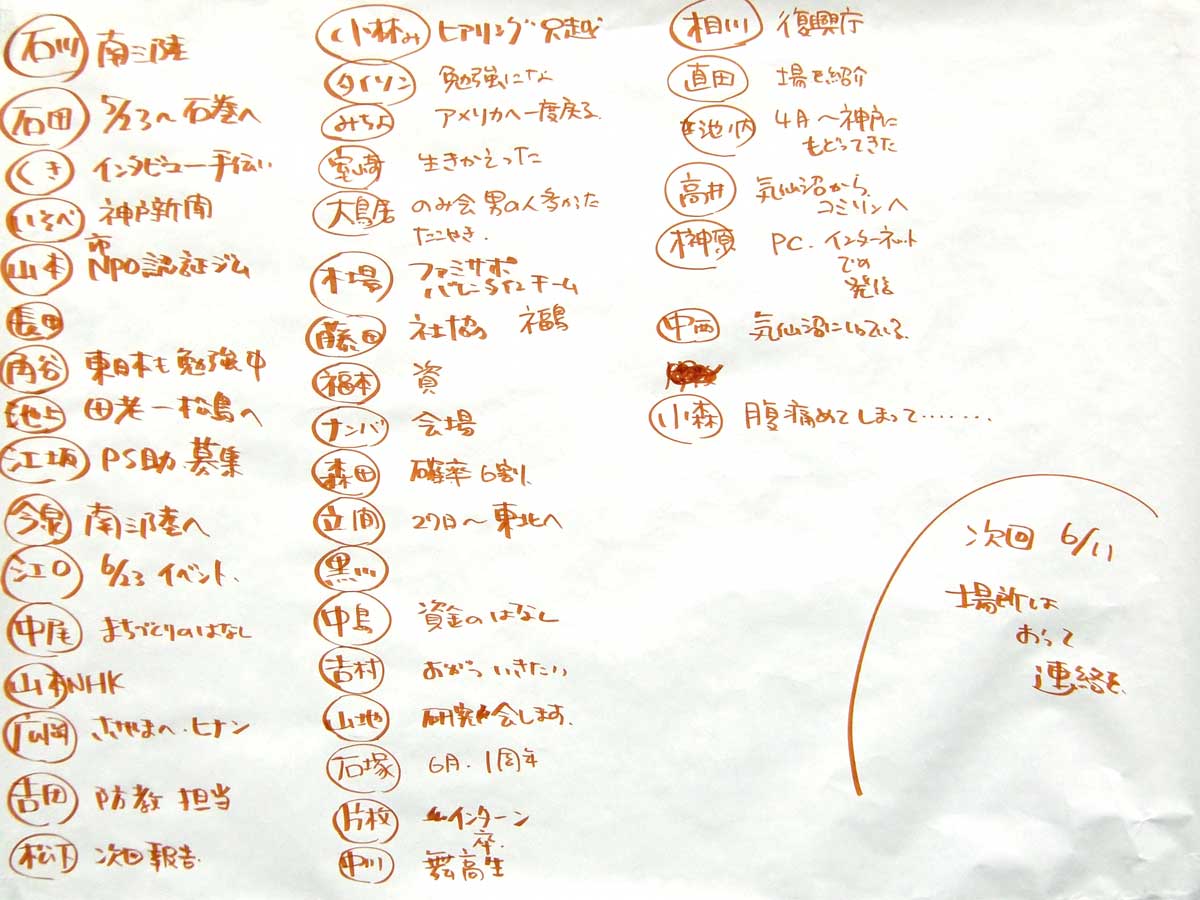 石川 南三陸
石田 5/23〜石巻へ
くき インタビュー手伝い
いそべ 神戸新聞
山本 市
NPO認証ジム
長田
角谷 東日本も勉強中
池上 田老ー松島へ
江坂 PS助.募集
今泉 南三陸へ
江口 6/23 イベント.
中尾 まちづくりのはなし
山本 NHK
広岡 ヒナン
吉田 防教 担当
松下 次回報告.
小林み ヒアリング
タイソン 勉強にな
みちよ アメリカへ一度戻る.
宮崎 生きかえった
大鳥居 のみ会 男の人多かった
たこやき.
木場 ファミサポ
チーム
藤田 社協 福島
福本 資
ナンバ 会場
森田 確率6割.
立間 27日〜東北へ
黒川
中島 資金のはなし
吉村 おがつ いきたい
山地 研究会します.
石塚 6月.1周年
片枚 インターン
卒.
中川 舞高生
相川 復興庁
直田 場を紹介
池ノ内 4月〜神戸に
もどってきた
高井 気仙沼から.
コミリンへ
榊原 PC.インターネット
での
発信
中西 気仙沼にいっている.
小森 腹痛めてしまって........
次回 6/11
場所は
おって
連絡を.